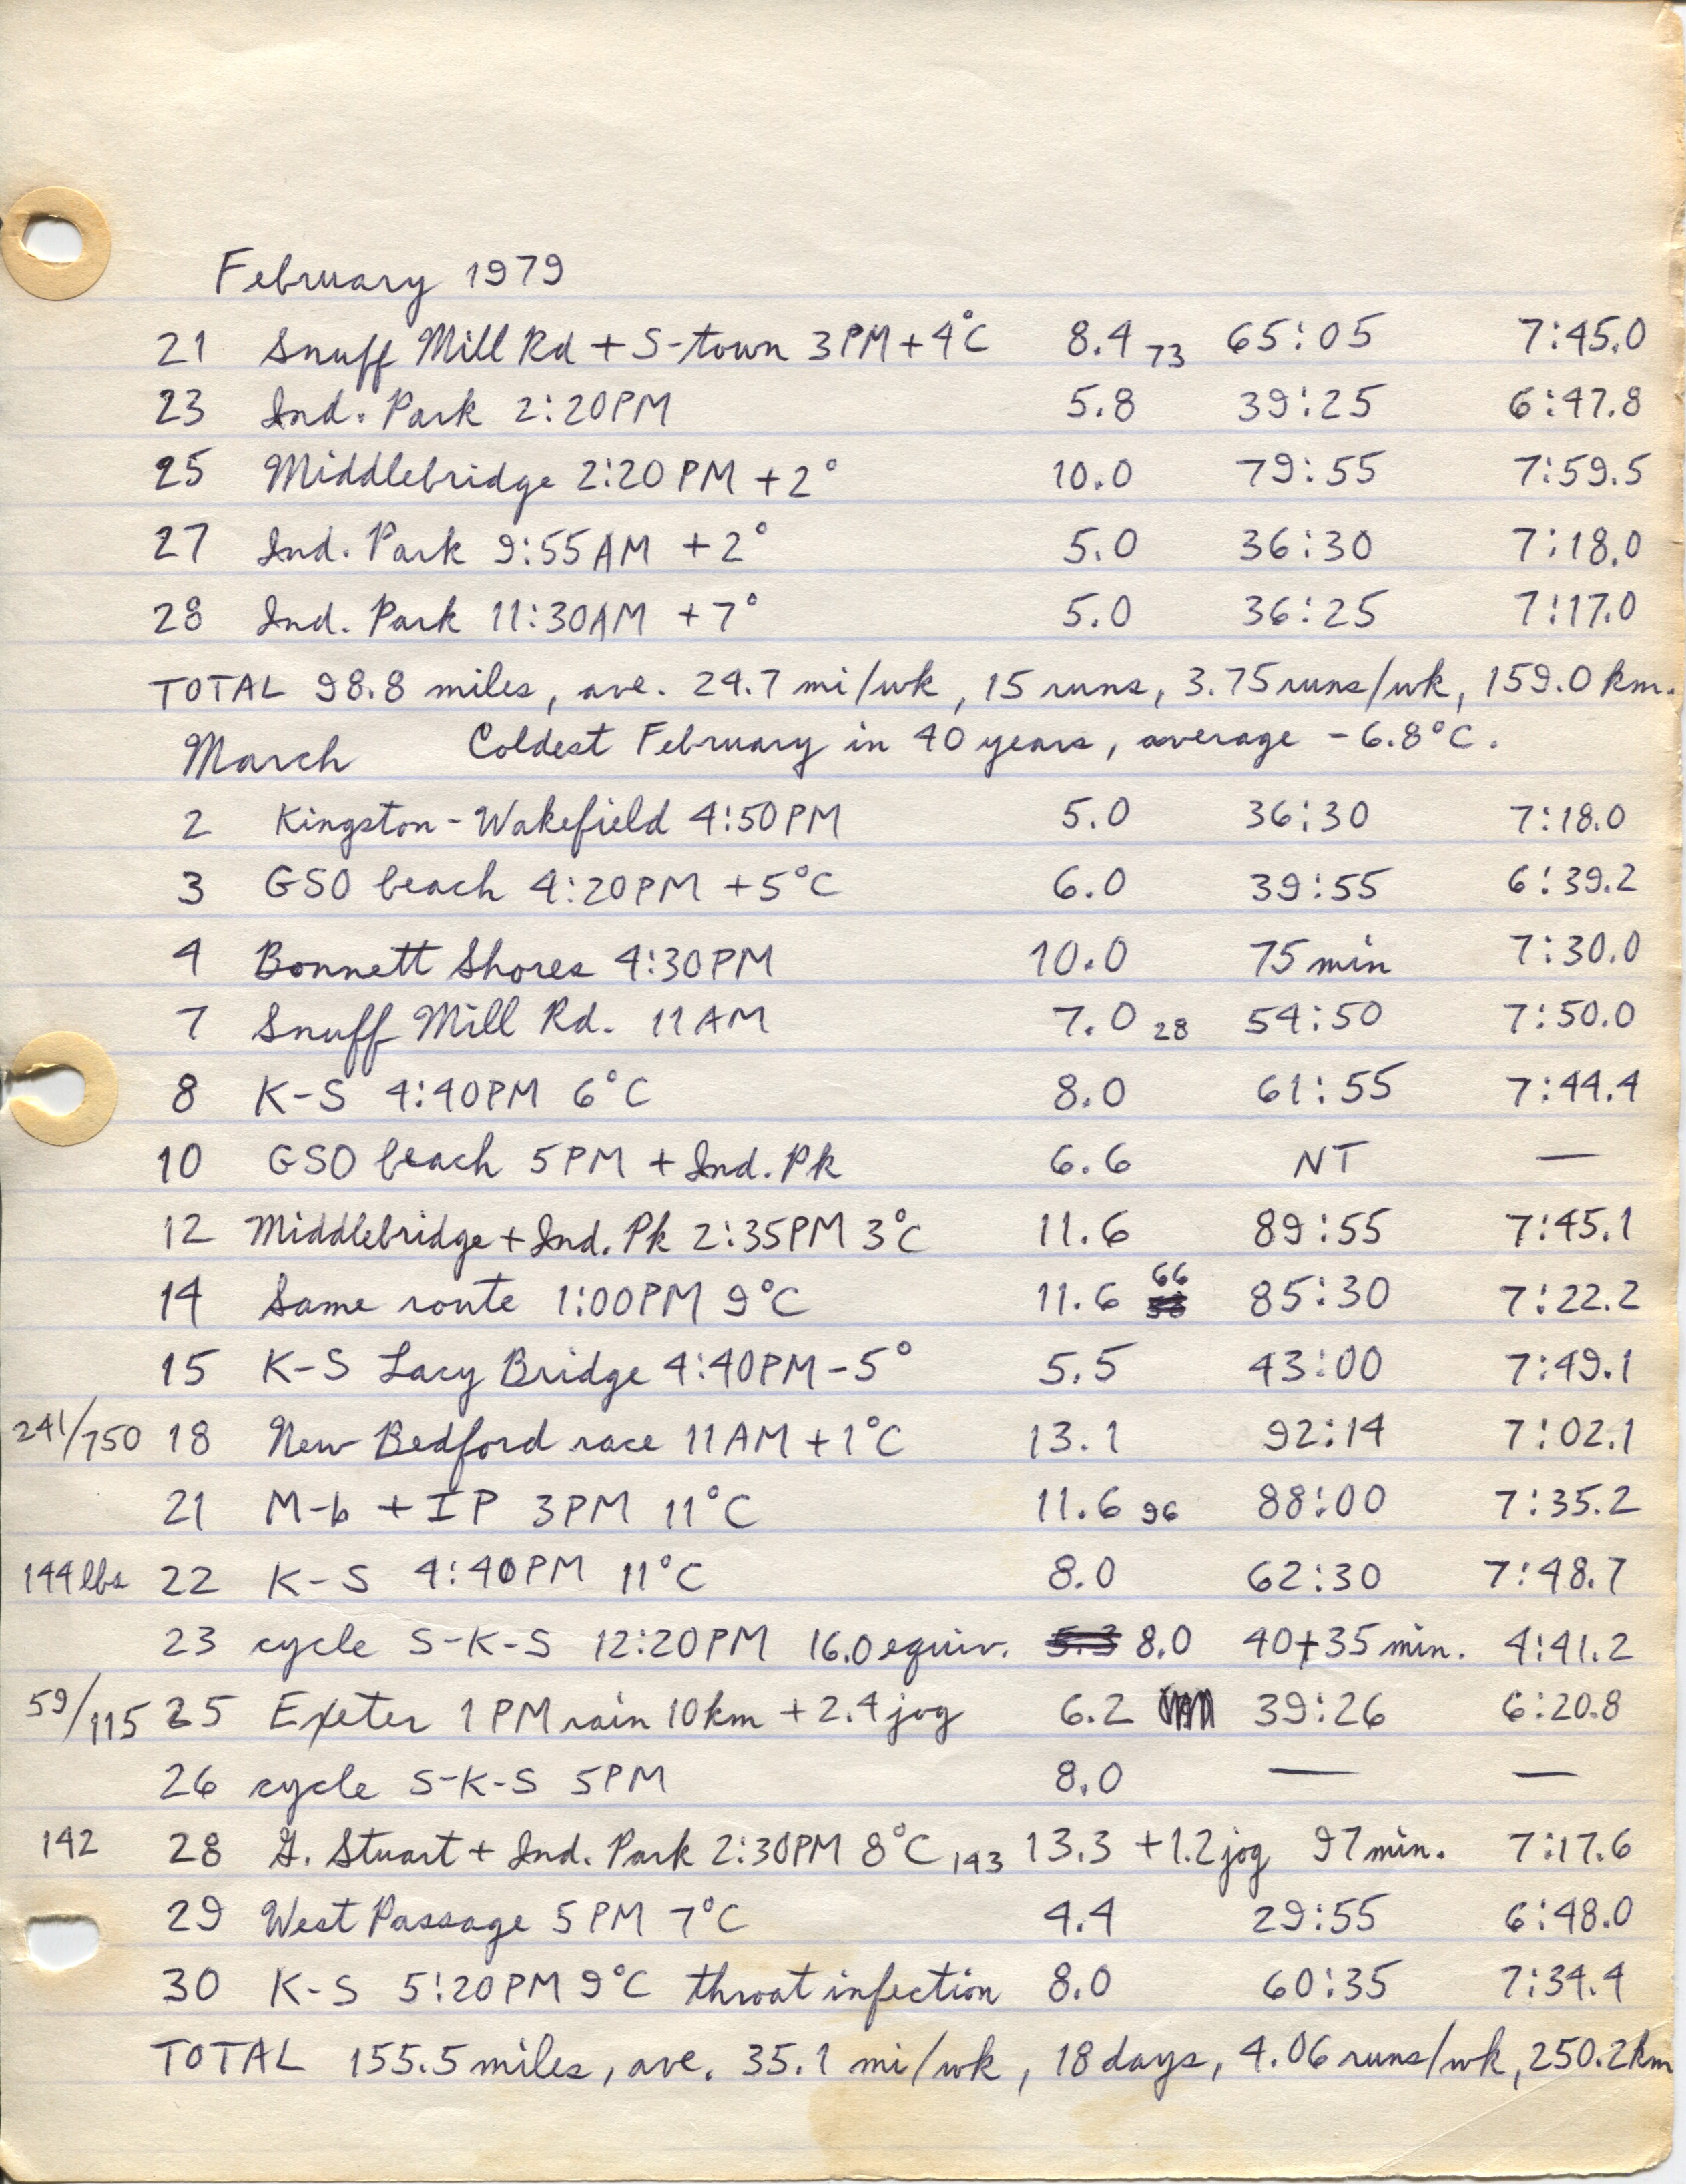 February 1979
21 Snuff Mill Rd + S-town 3PM +4°C 8.4 73 65:05 7:45.0
23 Ind. Park 2:20PM 5.8 39:25 6:47.8
25 Middlebridge 2:20 PM +2° 10.0 79:55 7:59.5
27 Ind. Park 9:55AM +2° 5.0 36:30 7:18.0
28 Ind. Park 11:30AM +7° 5.0 36:25 7:17.0
TOTAL 98.8 miles, ave. 24.7 mi/wk, 15 runs, 3.75 runs/wk, 159.0 km.
March Coldest February in 40 years, average -6.8°C.
2 Kingston-Wakefield 4:50PM 5.0 36:30 7:18.0
3 GSO beach 4:20PM +5°C 6.0 39:55 6:39.2
4 Bonnett Shores 4:30PM 10.0 75 min 7:30.0
7 Snuff Mill Rd. 11AM 7.0 28 54:50 7:50.0
8 K-S 4:40PM 6°C 8.0 61:55 7:44.4
10 GSO beach 5PM + Ind. Pk 6.6 NT —
12 Middlebridge + Ind. Pk 2:35PM 3°C 11.6 89:55 7:45.1
14 Same route 1:00PM 9°C 11.6 66 85:30 7:22.2
15 K-S Lacy Bridge 4:40PM -5° 5.5 43:00 7:49.1
241/750 18 New Bedford race 11AM +1°C 13.1 92:14 7:02.1
21 M-b + IP 3PM 11°C 11.6 96 88:00 7:35.2
144 lbs 22 K-S 4:40PM 11°C 8.0 62:30 7:48.7
23 cycle S-K-S 12:20PM 16.0 equiv. 5.3 8.0 40+35 min. 4:41.2
59/115 25 Exeter 1PM rain 10km + 2.4 jog 6.2 39:26 6:20.8
26 cycle S-K-S 5PM 8.0 — —
142 28 G. Stuart + Ind. Park 2:30PM 8°C 143 13.3 +1.2 jog 97 min. 7:17.6
29 West Passage 5PM 7°C 4.4 29:55 6:48.0
30 K-S 5:20PM 9°C throat infection 8.0 60:35 7:34.4
TOTAL 155.5 miles, ave. 35.1 mi/wk, 18 days, 4.06 runs/wk, 250.2km